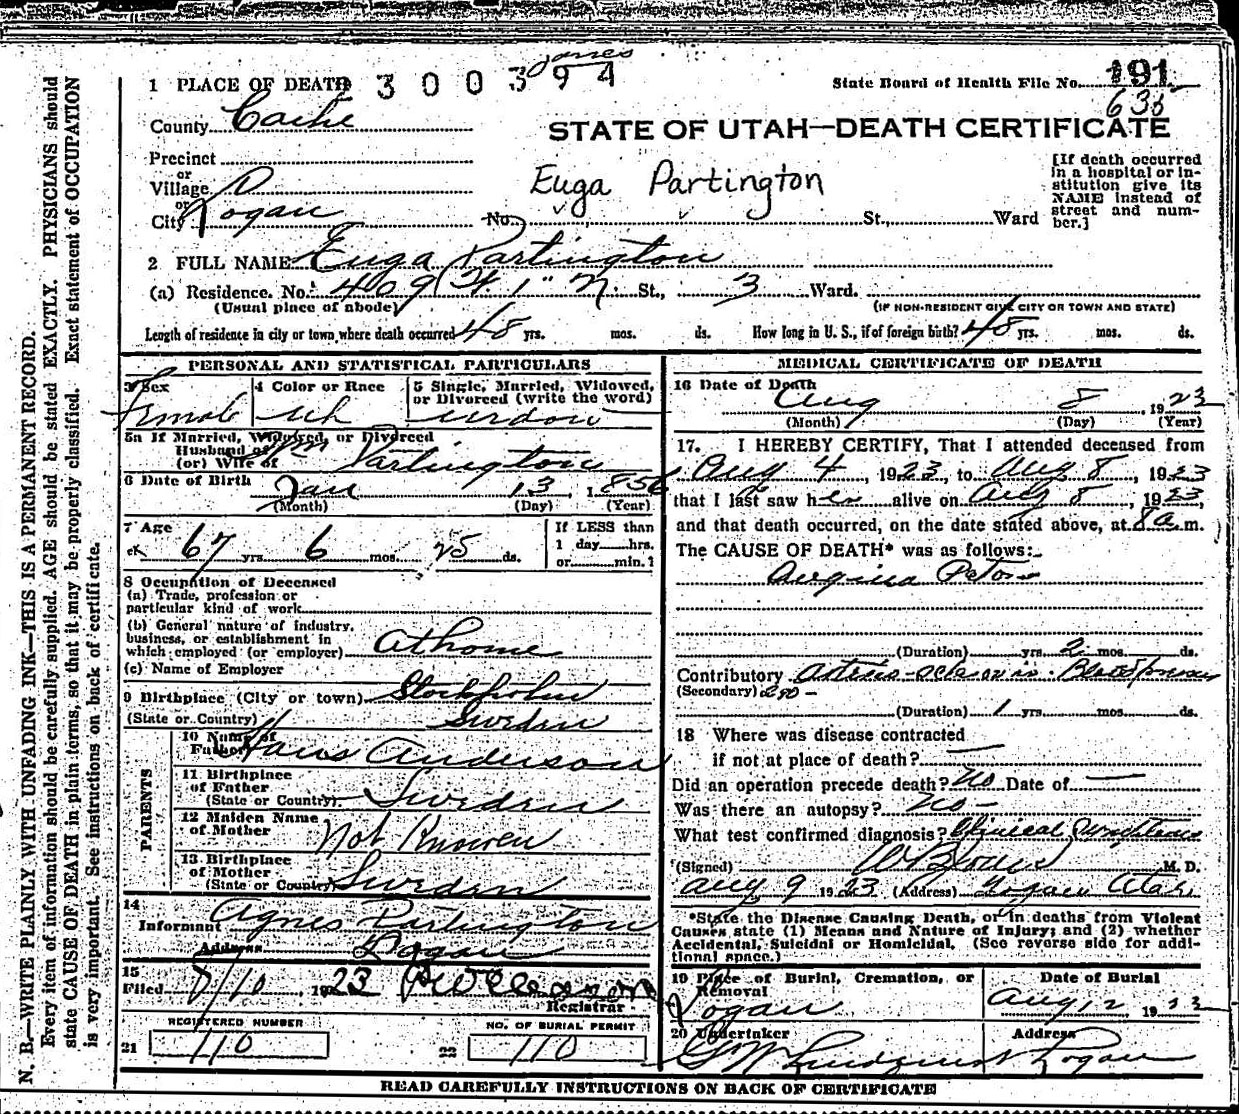 Jones
1 PLACE OF DEATH 300394
State Board of Health File No. 191
635
County Cache
STATE OF UTAH—DEATH CERTIFICATE
Precinct
or
Village
or
City Logan
Euga Partington
No. St., Ward
[If death occurred
in a hospital or in-
stitution give its
NAME instead of
street and num-
ber.]
2 FULL NAME Euga Partington
(a) Residence. No. 409 W 1" N St., 3 Ward.
(Usual place of abode) (IF NON-RESIDENT GIVE CITY OR TOWN AND STATE)
Length of residence in city or town where death occurred 48 yrs. mos. ds. How long in U. S., if of foreign birth? 48 yrs. mos. ds.
PERSONAL AND STATISTICAL PARTICULARS
3 Sex
Female
4 Color or Race
wh
5 Single, Married, Widowed,
or Divorced (write the word)
widow
5a If Married, Widowed, or Divorced
Husband of
(or) Wife of Wm Partington
6 Date of Birth Jan 13, 1856
(Month) (Day) (Year)
7 Age
67 yrs. 6 mos. 25 ds.
If LESS than
1 day hrs.
or min.?
8 Occupation of Deceased
(a) Trade, profession or
particular kind of work
(b) General nature of industry,
business, or establishment in
which employed (or employer) At home
(c) Name of Employer
9 Birthplace (City or town) Stockholm
(State or Country) Sweden
PARENTS
10 Name of
Father Hans Anderson
11 Birthplace
of Father
(State or Country) Sweden
12 Maiden Name
of Mother Not Known
13 Birthplace
of Mother
(State or Country) Sweden
14
Informant Agnes Partington
Address Logan
15
Filed 8/10, 1923
Registrar
REGISTERED NUMBER
21 110
NO. OF BURIAL PERMIT
22 110
MEDICAL CERTIFICATE OF DEATH
16 Date of Death
Aug 8, 1923
(Month) (Day) (Year)
17. I HEREBY CERTIFY, That I attended deceased from
Aug 4, 1923, to Aug 8, 1923
that I last saw her alive on Aug 8, 1923,
and that death occurred, on the date stated above, at 8 a m.
The CAUSE OF DEATH* was as follows:
Angina Pectoris
(Duration) yrs. 2 mos. ds.
Contributory Arterio-sclerosis. Blood pressure
(Secondary) 280 -
(Duration) 1 yrs. mos. ds.
18 Where was disease contracted
if not at place of death?
Did an operation precede death? No Date of
Was there an autopsy? No
What test confirmed diagnosis? Clinical
(Signed) M. D.
Aug 9 1923 (Address) Logan Utah
*State the Disease Causing Death, or in deaths from Violent
Causes state (1) Means and Nature of Injury; and (2) whether
Accidental, Suicidal or Homicidal. (See reverse side for addi-
tional space.)
19 Place of Burial, Cremation, or
Removal
Logan
Date of Burial
Aug 12, 1923
20 Undertaker
Address
Logan
READ CAREFULLY INSTRUCTIONS ON BACK OF CERTIFICATE
N. B.—WRITE PLAINLY WITH UNFADING INK—THIS IS A PERMANENT RECORD.
Every item of information should be carefully supplied. AGE should be stated EXACTLY. PHYSICIANS should
state CAUSE OF DEATH in plain terms, so that it may be properly classified. Exact statement of OCCUPATION
is very important. See instructions on back of certificate.